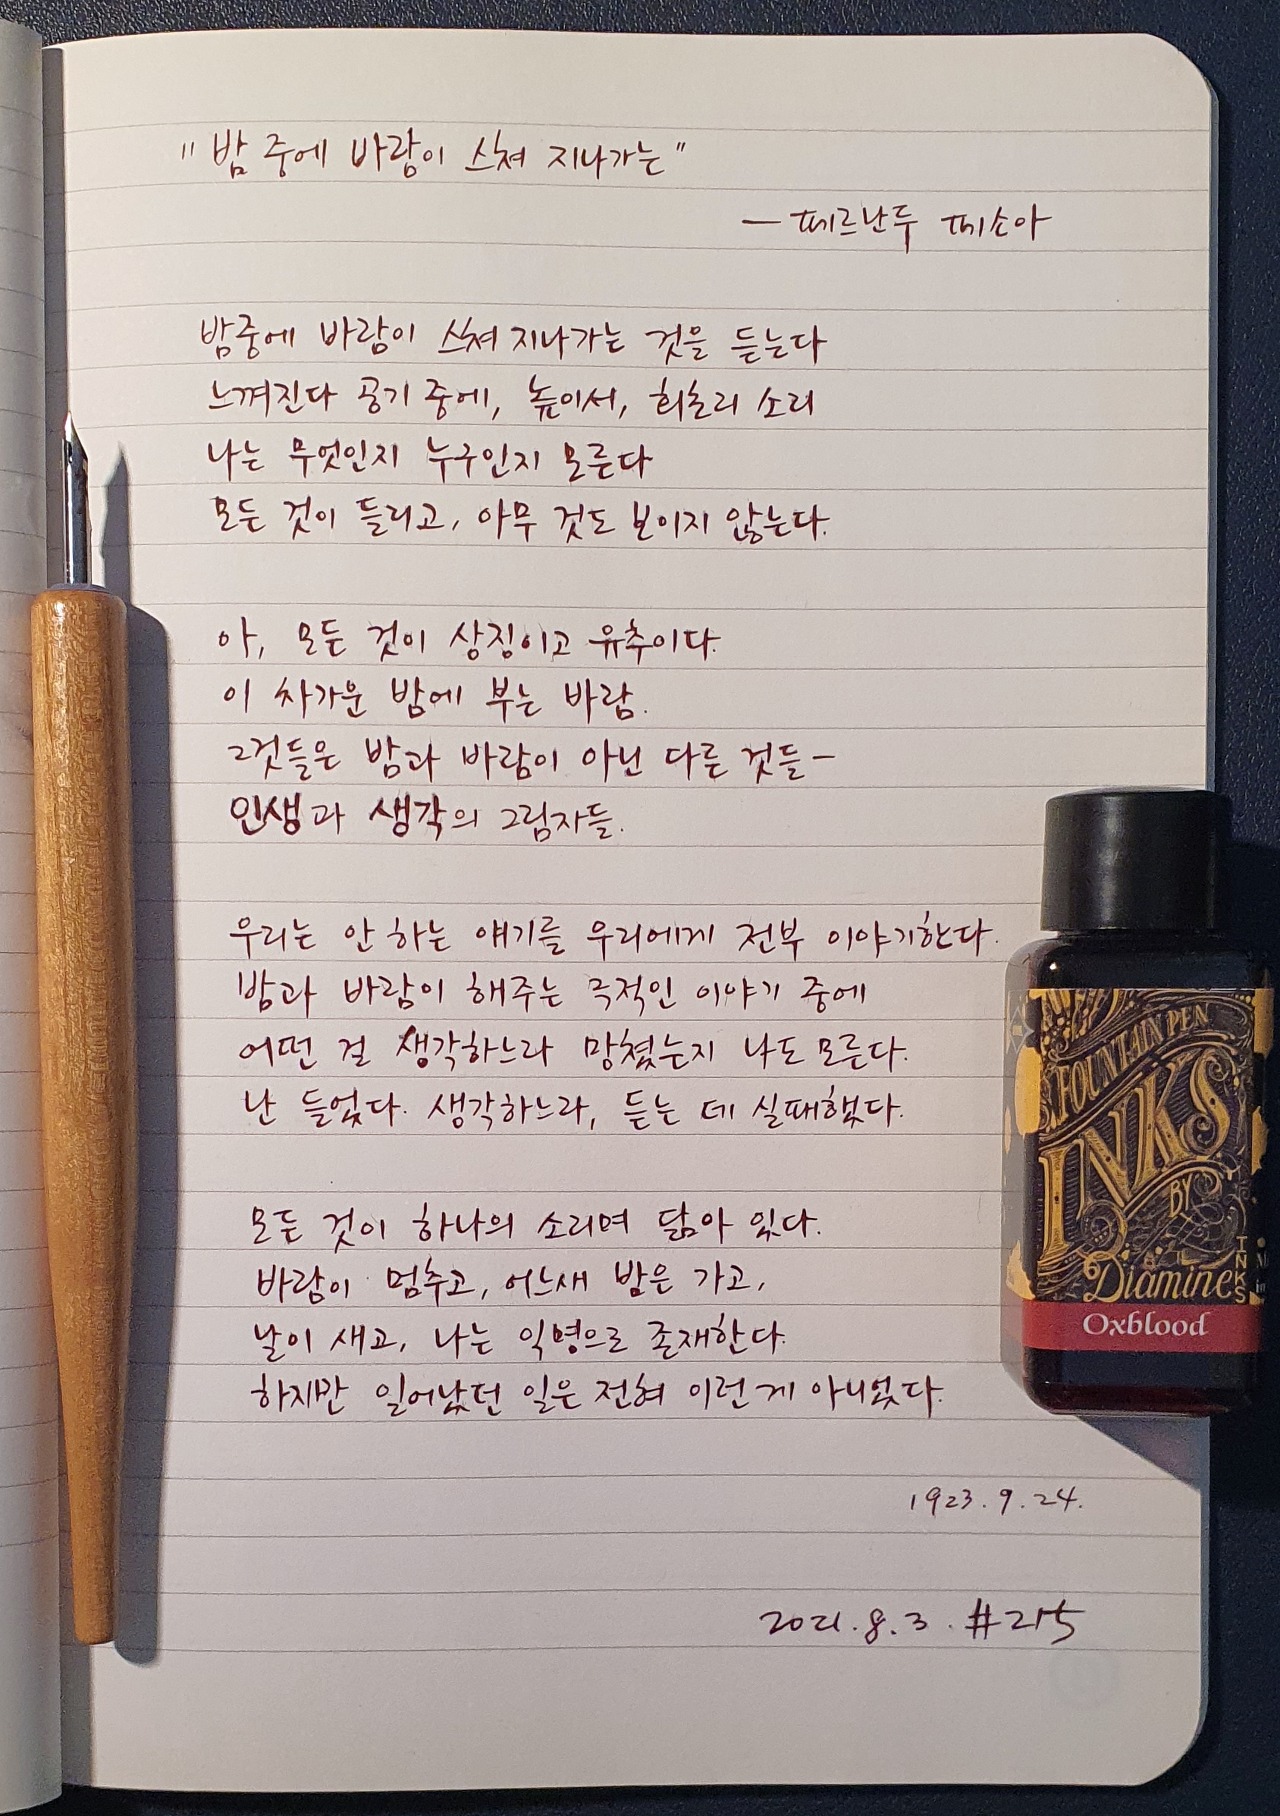 "밤 중에 바람이 스쳐 지나가는"
— 페르난두 페소아
밤중에 바람이 스쳐 지나가는 것을 듣는다
느껴진다 공기 중에, 높이서, 회초리 소리
나는 무엇인지 누구인지 모른다
모든 것이 들리고, 아무 것도 보이지 않는다.
아, 모든 것이 상징이고 유추이다.
이 차가운 밤에 부는 바람.
그것들은 밤과 바람이 아닌 다른 것들—
인생과 생각의 그림자들.
우리는 안 하는 얘기를 우리에게 전부 이야기한다.
밤과 바람이 해주는 극적인 이야기 중에
어떤 걸 생각하느라 망쳤는지 나도 모른다.
난 들었다. 생각하느라, 듣는 데 실패했다.
모든 것이 하나의 소리며 닮아 있다.
바람이 멈추고, 어느새 밤은 가고,
날이 새고, 나는 익명으로 존재한다.
하지만 일어났던 일은 전혀 이런게 아니었다.
1923.9.24.
2021.8.3. #215
FOUNTAIN PEN
INKS
BY
Diamine
INKS
Oxblood